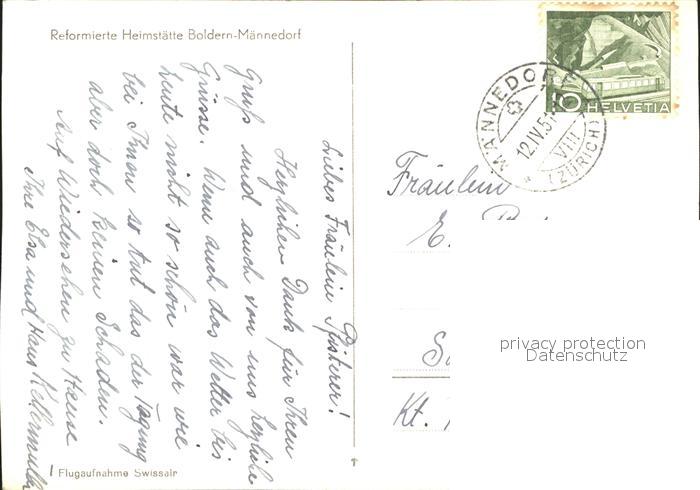 Reformierte Heimstätte Boldern-Männedorf
Liebes Fräulein Pfisterer!
Herzlichen Dank für Ihren
Gruß und auch von uns herzliche
Grüsse. Wenn auch das Wetter bis
heute nicht so schön war wie
bei Ihnen so tut das der Tagung
aber doch keinen Schaden.
Auf Wiedersehen zu Hause
Ihre Elsa und Hans
Flugaufnahme Swissair
HELVETIA
10
MÄNNEDORF
12.IV.51
VIII
(ZÜRICH)
Fräulein
E.
Kt.
privacy protection
Datenschutz